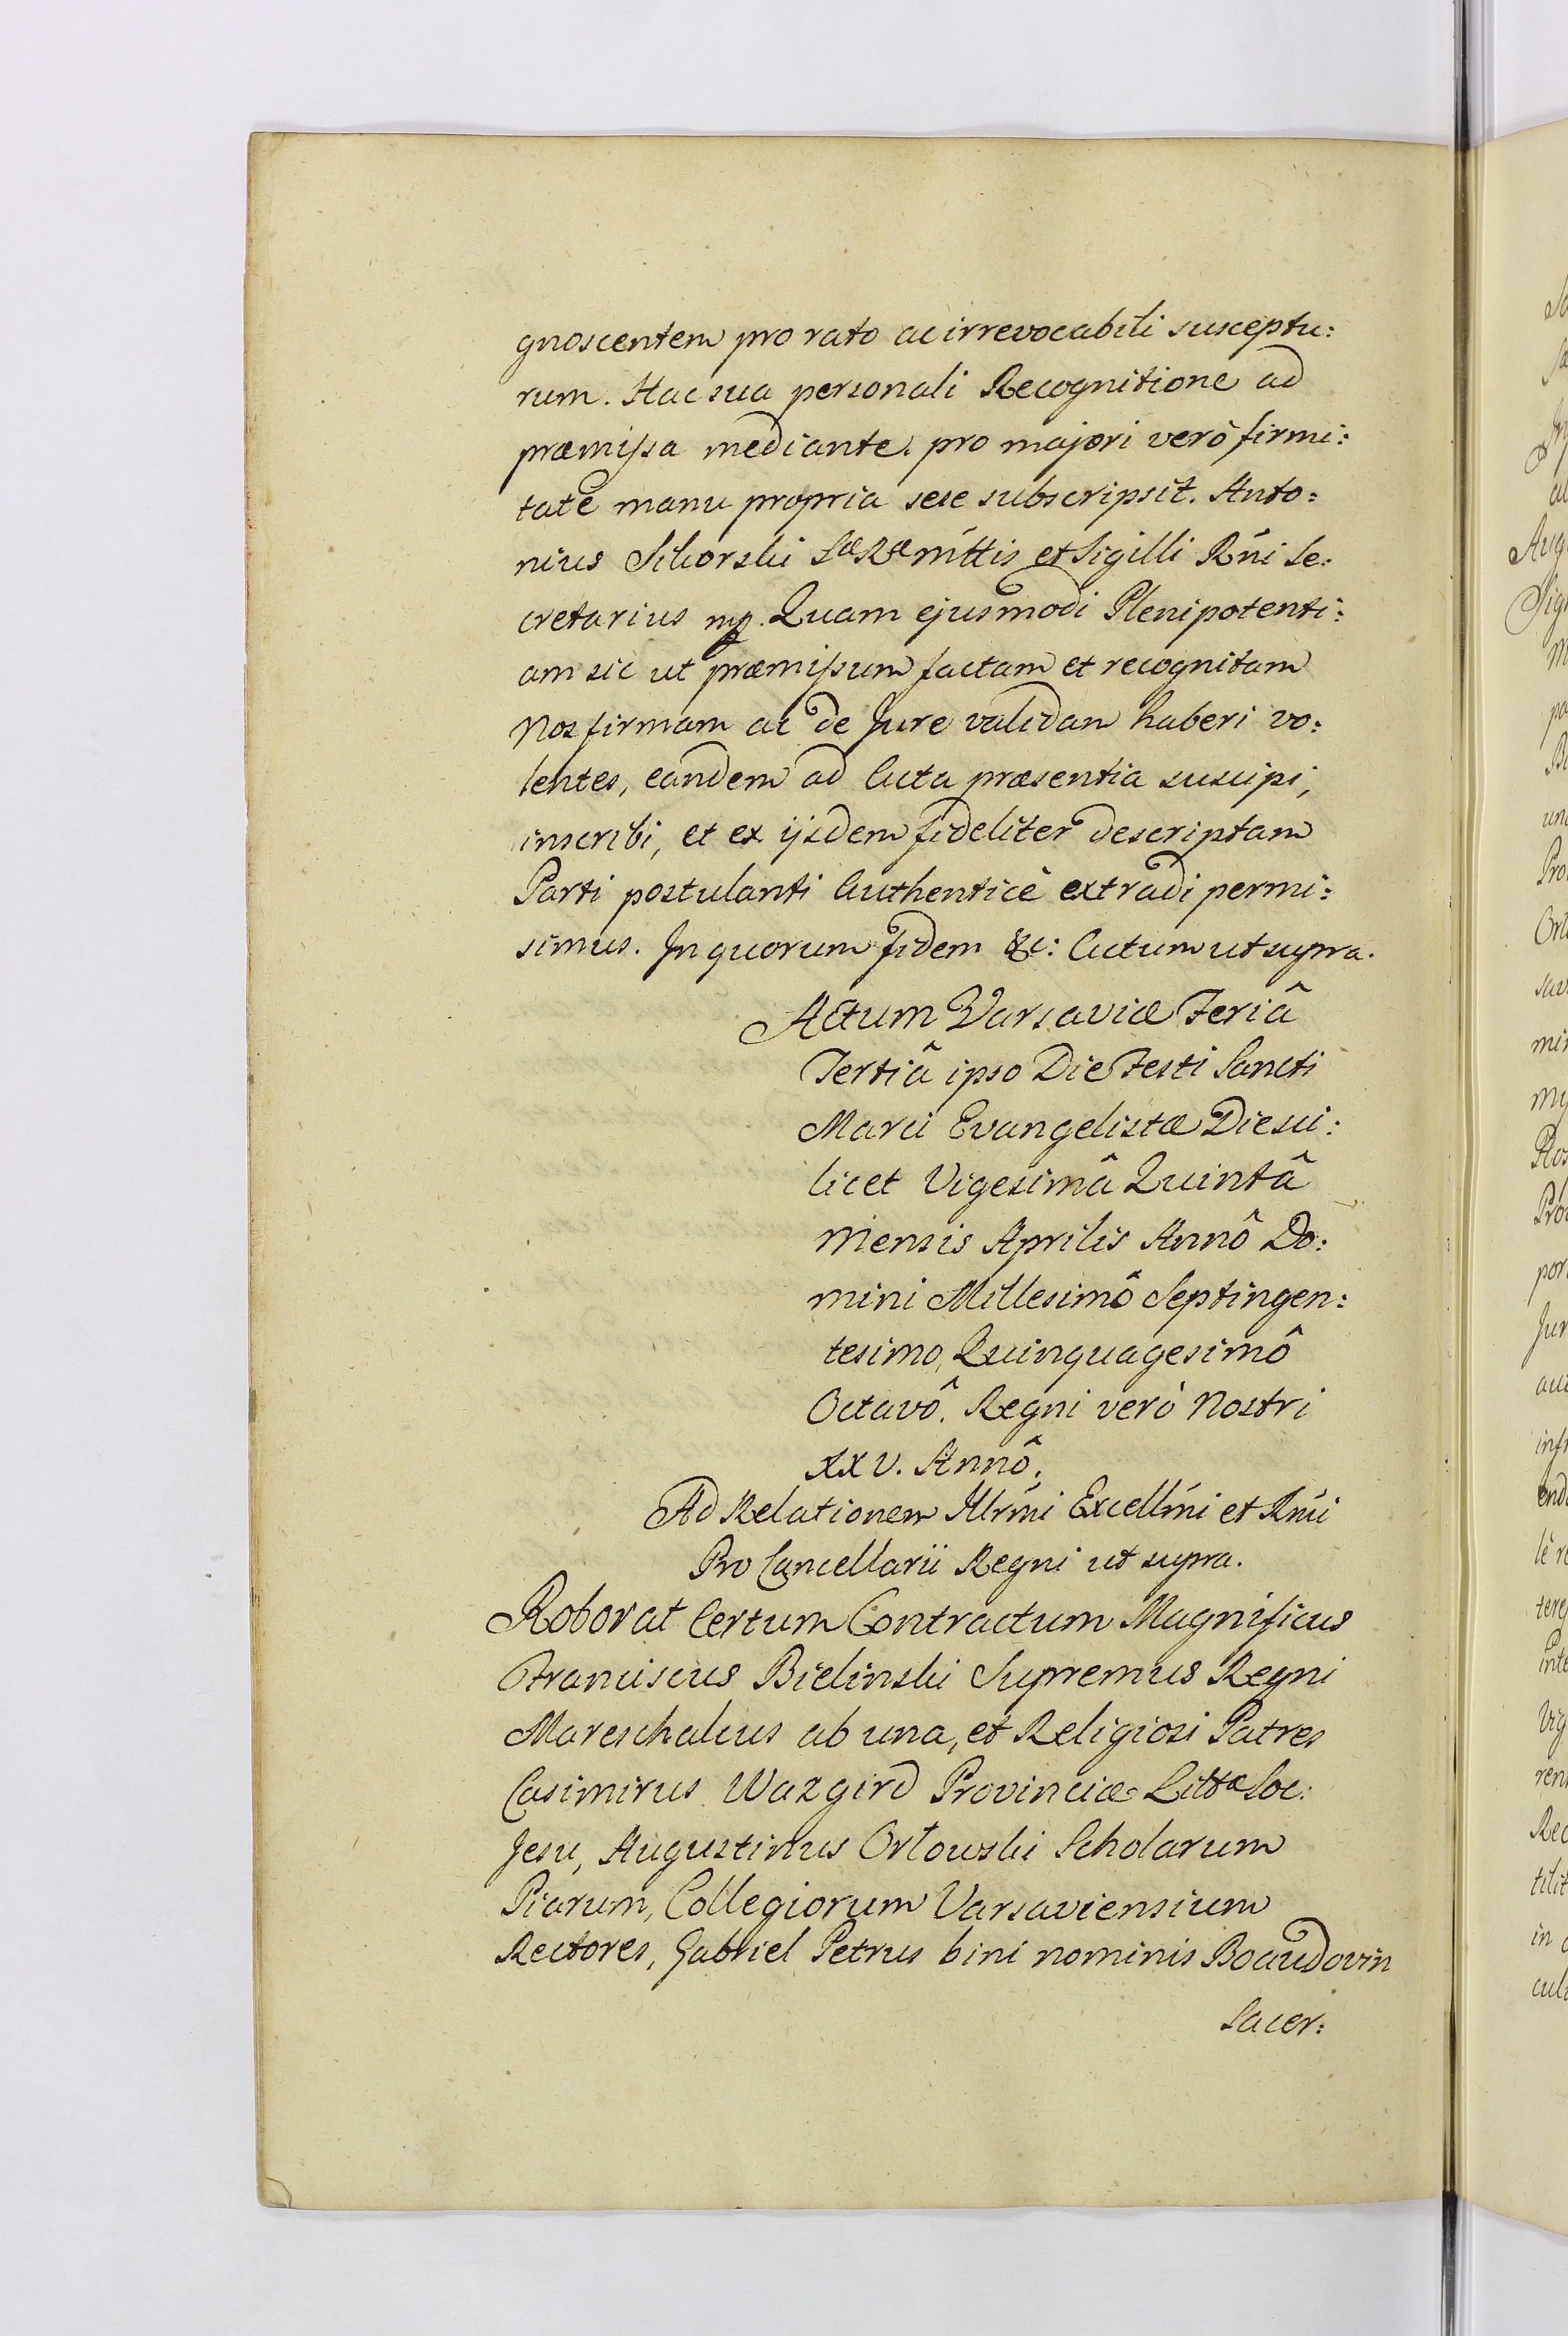 gnoscentem pro rato ac irrevocabili susceptu:
rum. Hac sua personali Recognitione ad
præmissa mediante. pro majori verò firmi:
tate manu propria sese subscripsit. Anto:
nius Sikorski Sæ Ræ mttis et Sigilli Rni Se:
cretarius mp. Quam ejusmodi Plenipotenti:
am sic ut præmissum factam et recognitam
Nos firmam ac de Jure validam haberi vo:
lentes, eandem ad Acta præsentia suscipi,
inscribi, et ex ijsdem fideliter descriptam
Parti postulanti Authenticè extradi permi:
simus. In quorum fidem &c: Actum ut supra.
Actum Varsaviæ Feriâ
Tertiâ ipso Die Festi Sancti
Marci Evangelistæ Die sci:
licet Vigesimâ Quintâ
Mensis Aprilis Annô Do:
mini Millesimô Septingen:
tesimo, Quinquagesimô
Octavô. Regni verò Nostri
XXV. Annô.
Ad Relationem Illrmi Excellmi et Rmi
Pro Cancellarii Regni ut supra.
Roborat Certum Contractum Magnificus
Franciscus Bielinski Supremus Regni
Mareschalcus ab una, et Religiosi Patres
Casimirus Wazgird Provinciæ Littæ Soc:
Jesu, Augustinus Orłowski Scholarum
Piarum, Collegiorum Varsaviensium
Rectores, Gabriel Petrus bini nominis Boaudovin
Sacer: